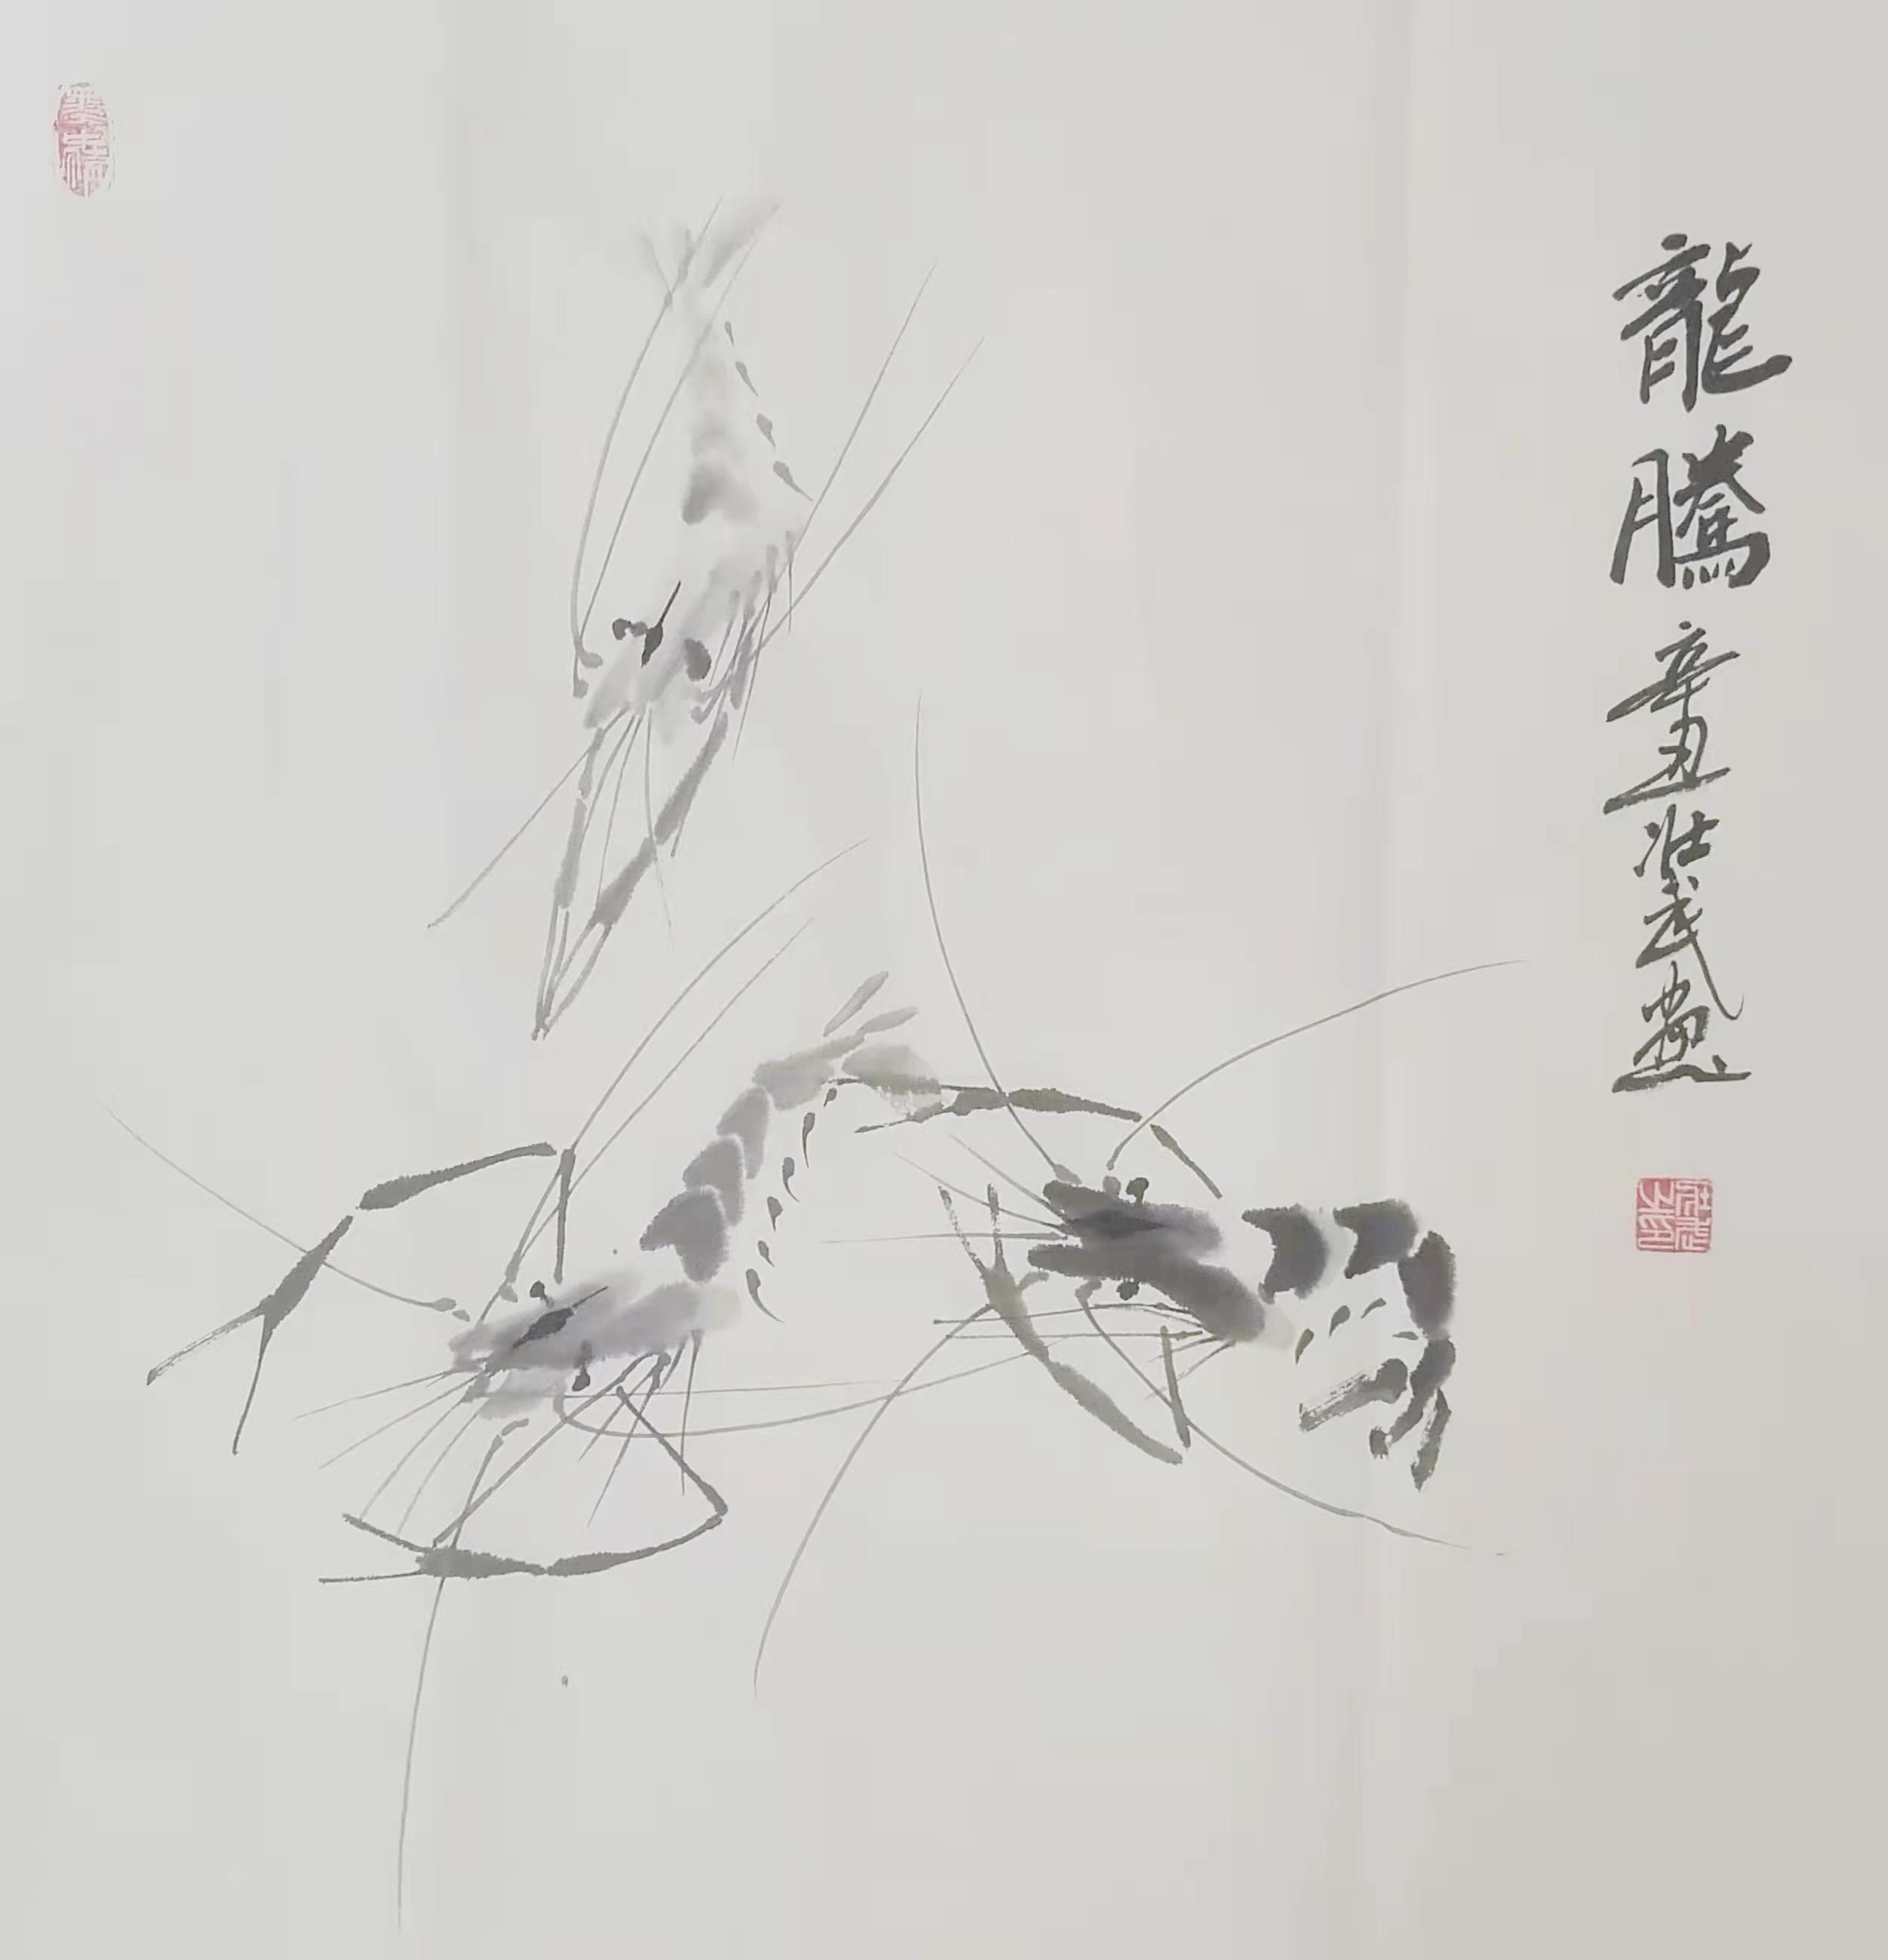 龍騰 辛丑 壯武畫